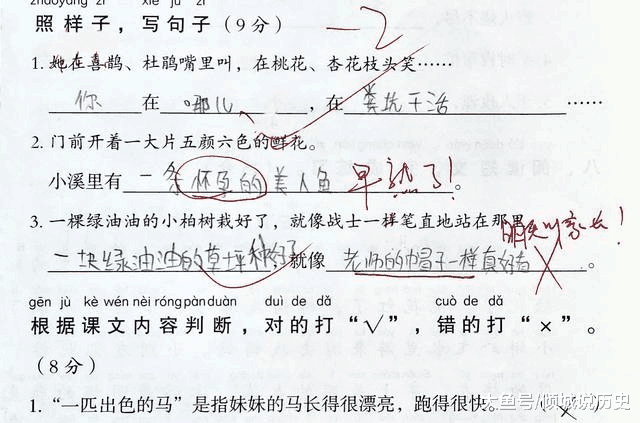 zhàoyàng zi xiě jù zi
照样子，写句子（9分） -2
1. 她在喜鹊、杜鹃嘴里叫，在桃花、杏花枝头笑……
你 在 哪儿 ，在 粪坑干活 ……
2. 门前开着一大片五颜六色的鲜花。
小溪里有 一条怀孕的美人鱼 。
3. 一棵绿油油的小柏树栽好了，就像战士一样笔直地站在那里。
明天叫家长！
一块绿油油的草坪种好了，就像 老师的帽子一样真好看 。
gēn jù kè wén nèi róng pàn duàn duì de dǎ cuò de dǎ
根据课文内容判断，对的打“√”，错的打“×”。
（8分）
1. “一匹出色的马”是指妹妹的马长得很漂亮，跑得很快。（×）
大鱼号/倾城说历史